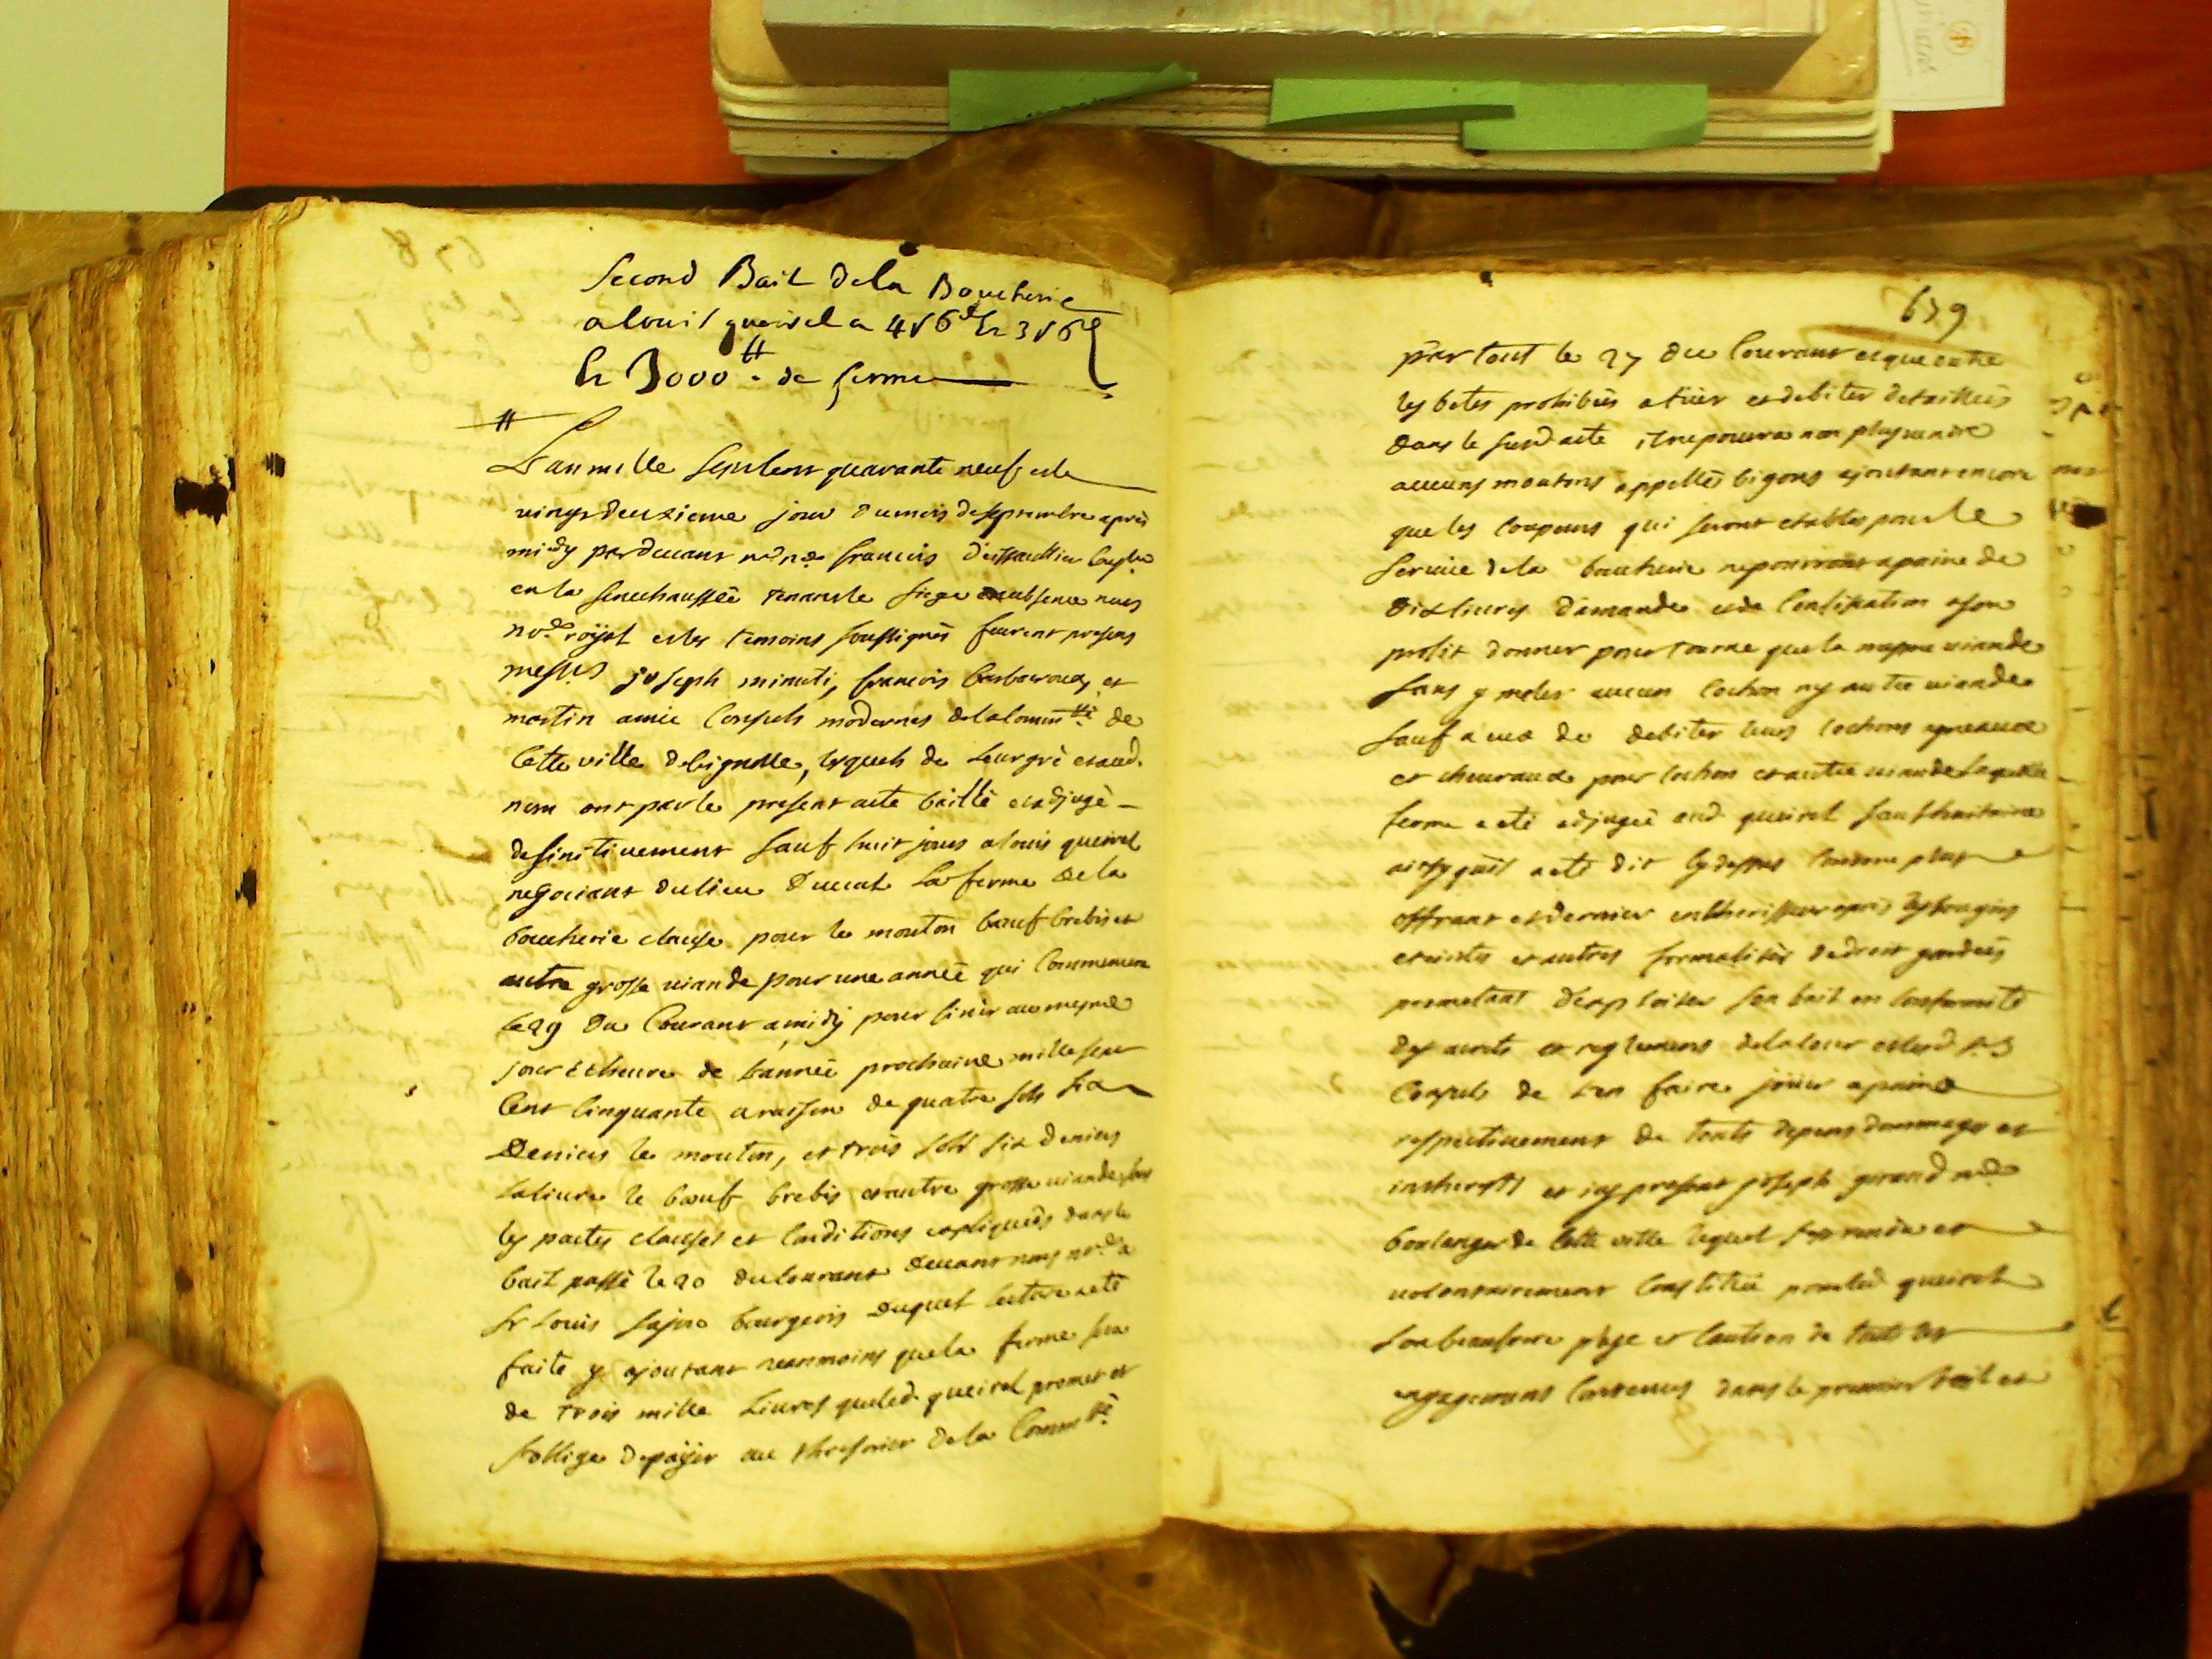 Second Bail dela Boucherie
a louis queirel a 4s 6d et 3s 6d
et 3000 ₶. de ferme
L'an mille sept cens quarante neuf et le
vingt deuzieme jour du mois de septembre apres
midy pardevant francois
en la senechaussée tenant le siege en absence nous
nore. royal et les temoins soussignés feurent presens
messrs joseph minuti, francois barbaroux et
martin amic consuls modernes de la commté de
cette ville de brignolle, lesquels de leur gré et aud.
nom ont par le present acte baillé et adjugé
definitivement sauf huit jours a louis queirel
negociant du lieu la ferme de la
boucherie close pour le mouton bœuf brebis et
autre grosse viande pour une année qui commencera
le 29 du courant a midy pour finir au mesme
jour et heure de l'année prochaine mille sept
cent cinquante a raison de quatre sols six
deniers le mouton, et trois sols six deniers
la livre le bœuf brebis et autre grosse viande, sous
les pactes clauses et conditions expliqués dans le
bail passé le 20 du courant devant nous nore. a
sr Louis bourgeois duquel lecture a eté
faite y ajoutant neanmoins que la ferme sera
de trois mille livres que led. queirel promet et
s'oblige de payer au thresorier de la commté
639
par tout le 27 du courant et que outre
les betes prohibées a tuer et debiter detaillées
dans le susd. acte il ne pourra non plus vendre
aucuns moutons appellés bigons ajoutant encore
que les coupeurs qui seront etablis pour le
service de la boucherie ne pourront a peine de
dix livres d'amande et de confiscation a son
profit donner pour tourne que la mesme viande
sans y meler aucun cochon ny autre viande
sauf a eux de debiter leurs cochons agneaux
et chevraux pour cochon et autre viande laquelle
ferme a eté adjugée aud. queirel sauf huitaine
ainsy qu'il a eté dit cy dessus comme plus
offrant et dernier encherisseur apres les bougies
eteintes et autres formalités de droit gardées
prometant d'exploiter son bail en conformité
des arrets et reglemens de la cour et lesd. srs
consuls de l'en faire jouir a peine
respectivement de touts depens dommages et
interests et icy present joseph giraud me.
boulanger de cette ville lequel s'est rendu et
volontairement constitué pour led. queirel
son beaufrere plege et caution de touts les
engagemens contenus dans le premier bail et